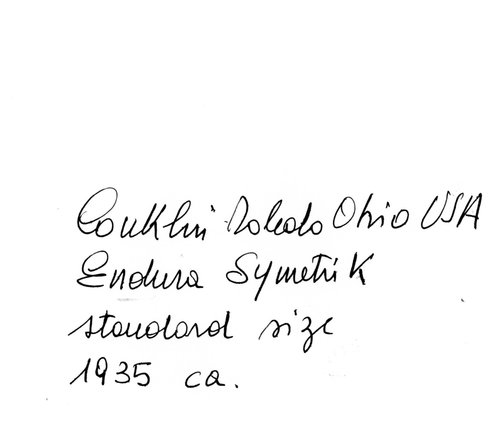 Conklin Toledo Ohio USA
Endura Symetrik
standard size
1935 ca.